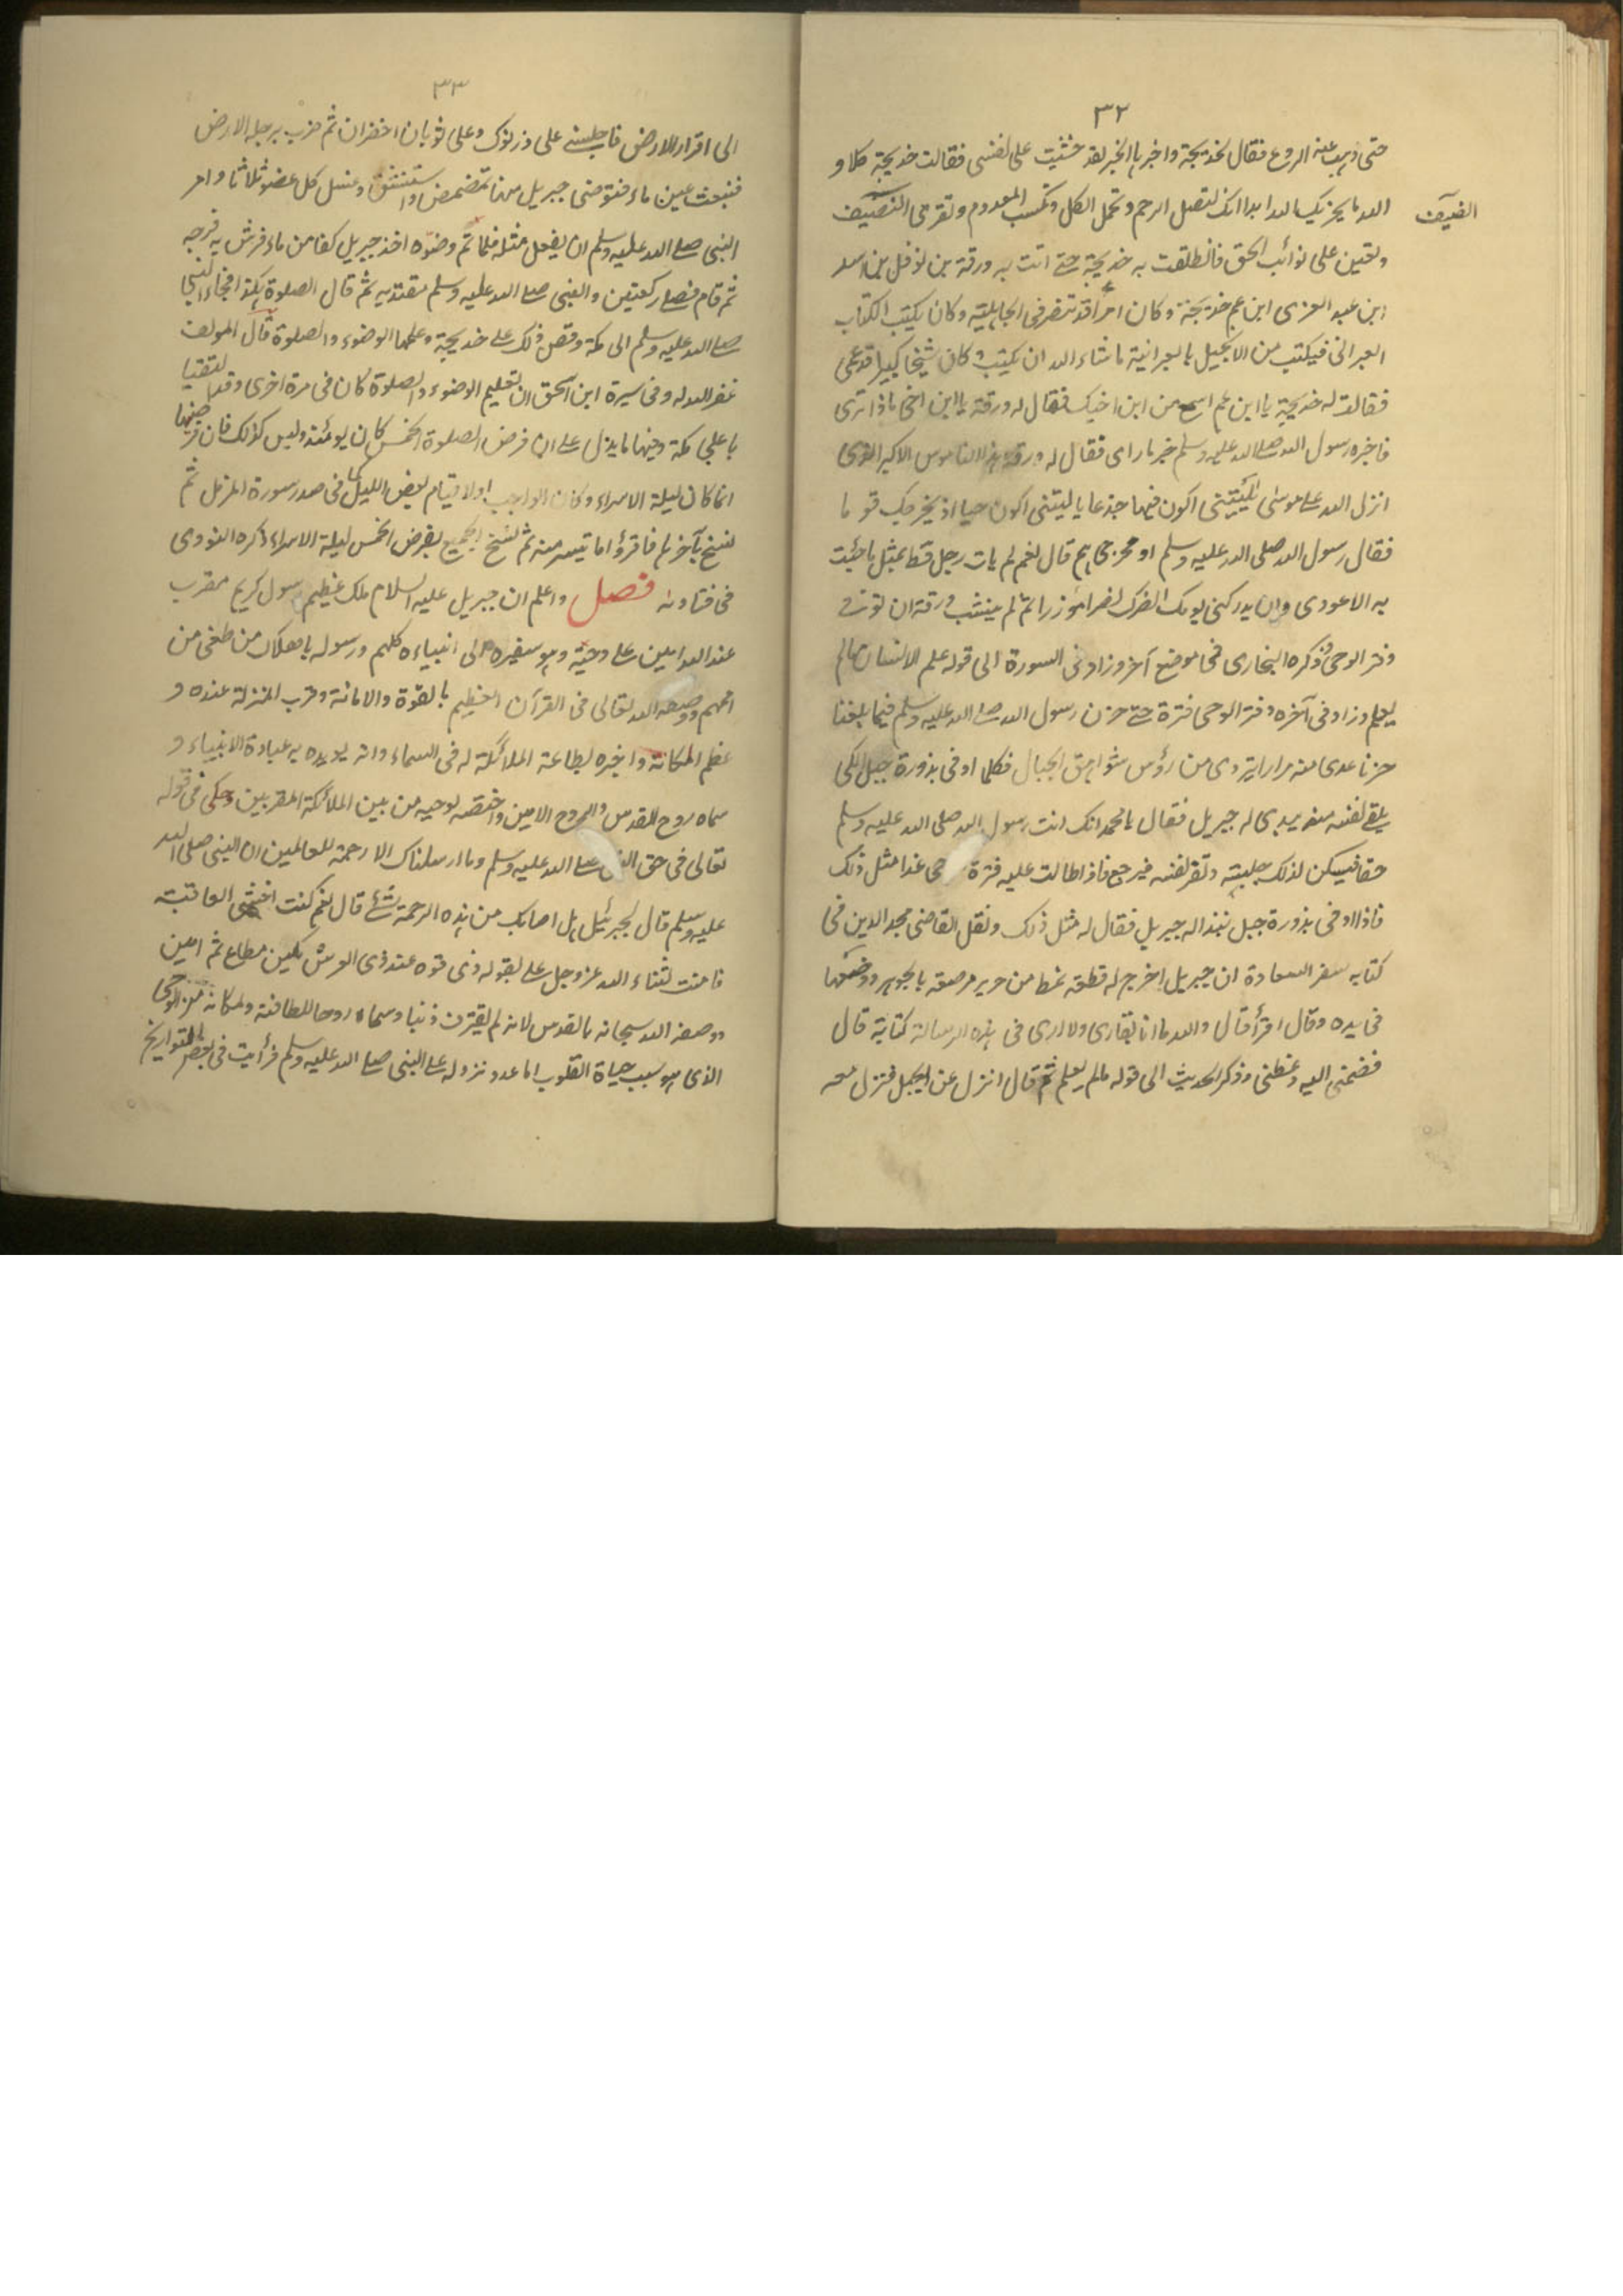 ٣٢
حتى ذهب عنه الروع فقال لخديجة واخبرها الخبر لقد خشيت على نفسى فقالت خديجة كلا و
الله ما يخزيك الله ابدا انك لتصل الرحم وتحمل الكل وتكسب المعدوم وتقرى الضيف
الضيف
وتعين على نوائب الحق فانطلقت به خديجة حتى اتت به ورقة بن نوفل بن اسد
ابن عبد العزى ابن عم خديجة وكان امرأ قد تنصر فى الجاهلية وكان يكتب الكتاب
العبرانى فيكتب من الانجيل بالعبرانية ما شاء الله ان يكتب وكان شيخا كبيرا قد عمى
فقالت له خديجة يا ابن عم اسمع من ابن اخيك فقال له ورقة يا ابن اخى ماذا ترى
فاخبره رسول الله صلى الله عليه وسلم خبر ما راى فقال له ورقة هذا الناموس الاكبر الذى
انزل الله على موسى ليتنى اكون فيها جذعا يا ليتنى اكون حيا اذ يخرجك قوما
فقال رسول الله صلى الله عليه وسلم او مخرجى هم قال نعم لم يات رجل قط بمثل ما جئت
به الا عودى وان يدركنى يومك انصرك نصرا مؤزرا ثم لم ينشب ورقة ان توفى
وفتر الوحى وذكره البخارى فى موضع آخر وزاد فى السورة الى قوله علم الانسان ما لم
يعلم وزاد فى آخره وفتر الوحى فترة حتى حزن رسول الله صلى الله عليه وسلم فيما بلغنا
حزنا عدى منه مرارا يتردى من رؤس شواهق الجبال فكلما اوفى بذروة جبل لكى
يلقى نفسه منه يبدى له جبريل فقال يا محمد انك انت رسول الله صلى الله عليه وسلم
حقا فيسكن لذلك جاشه وتقر نفسه فيرجع فاذا طالت عليه فترة حى غدا مثل ذلك
فاذا اوفى بذروة جبل تبدا له جبريل فقال له مثل ذلك ونقل القاضى مجد الدين فى
كتابه سفر السعادة ان جبريل اخرج له قطعة نمط من حرير مرصعة بالجوهر ووضعها
فى يده وقال اقرأ قال والله ما انا بقارى ولا ارى فى هذه الرسالة كتابة قال
فضمنى اليه وغطنى وذكر الحديث الى قوله مالم يعلم ثم قال انزل عن الجبل فنزل معه
٣٣
الى اقرار الارض فاجلسنى على درنوك وعلى ثوبان اخضران ثم ضرب برجله الارض
فنبعت عين ماء فتوضى جبريل منها تمضمض واستنشق وغسل كل عضو ثلاثا وامر
النبى صلى الله عليه وسلم ان يفعل مثله فلما تم وضوه اخذ جبريل كفا من ماء فرش به فرجه
ثم قام فصلى ركعتين والنبى صلى الله عليه وسلم مقتديه ثم قال الصلوة هكذا فجاء النبى
صلى الله عليه وسلم الى مكة وقص ذلك على خديجة وعلمها الوضوء والصلوة قال المولف
غفر الله له وفى سيرة ابن اسحق ان تعليم الوضوء والصلوة كان فى مرة اخرى وقد لتقتيا
باعلى مكة وفيها ما يدل على ان فرض الصلوة الخمس كان يومئذ وليس كذلك فان فرضها
انما كان ليلة الاسراء وكان الواجب اولا قيام بعض الليل كما فى صدر سورة المزمل ثم
نسخ بآخرها فاقرؤا ما تيسر منه ثم نسخ الجميع بفرض الخمس ليلة الاسراء ذكره النووى
فى فتاويه فصل واعلم ان جبريل عليه السلام ملك عظيم رسول كريم مقرب
عند الله امين على وحيه وهو سفيره الى انبياءه كلهم ورسوله باهلاك من طغى من
اممهم ووصفه الله تعالى فى القرآن العظيم بالقوة والامانة وقرب المنزلة عنده و
عظم المكانة واخبره بطاعة الملائكة له فى السماء وانه يويده به عبادة الانبياء و
سماه روح القدس والروح الامين واختصه لوحيه من بين الملائكة المقربين وحكى فى قوله
تعالى فى حق النبى صلى الله عليه وسلم وما ارسلناك الا رحمة للعالمين ان النبى صلى الله
عليه وسلم قال لجبرئيل هل اصابك من هذه الرحمة شئ قال نعم كنت اخشى العاقبة
فامنت لثناء الله عز وجل على بقوله ذى قوة عند ذى العرش مكين مطاع ثم امين
ووصفه الله سبحانه بالقدس لانه لم يقترف ذنبا وسماه روحا للطافته ولمكانه من الوحى
الذى هو سبب حياة القلوب اما عدد نزوله على النبى صلى الله عليه وسلم فرأيت فى بعض التواريخ